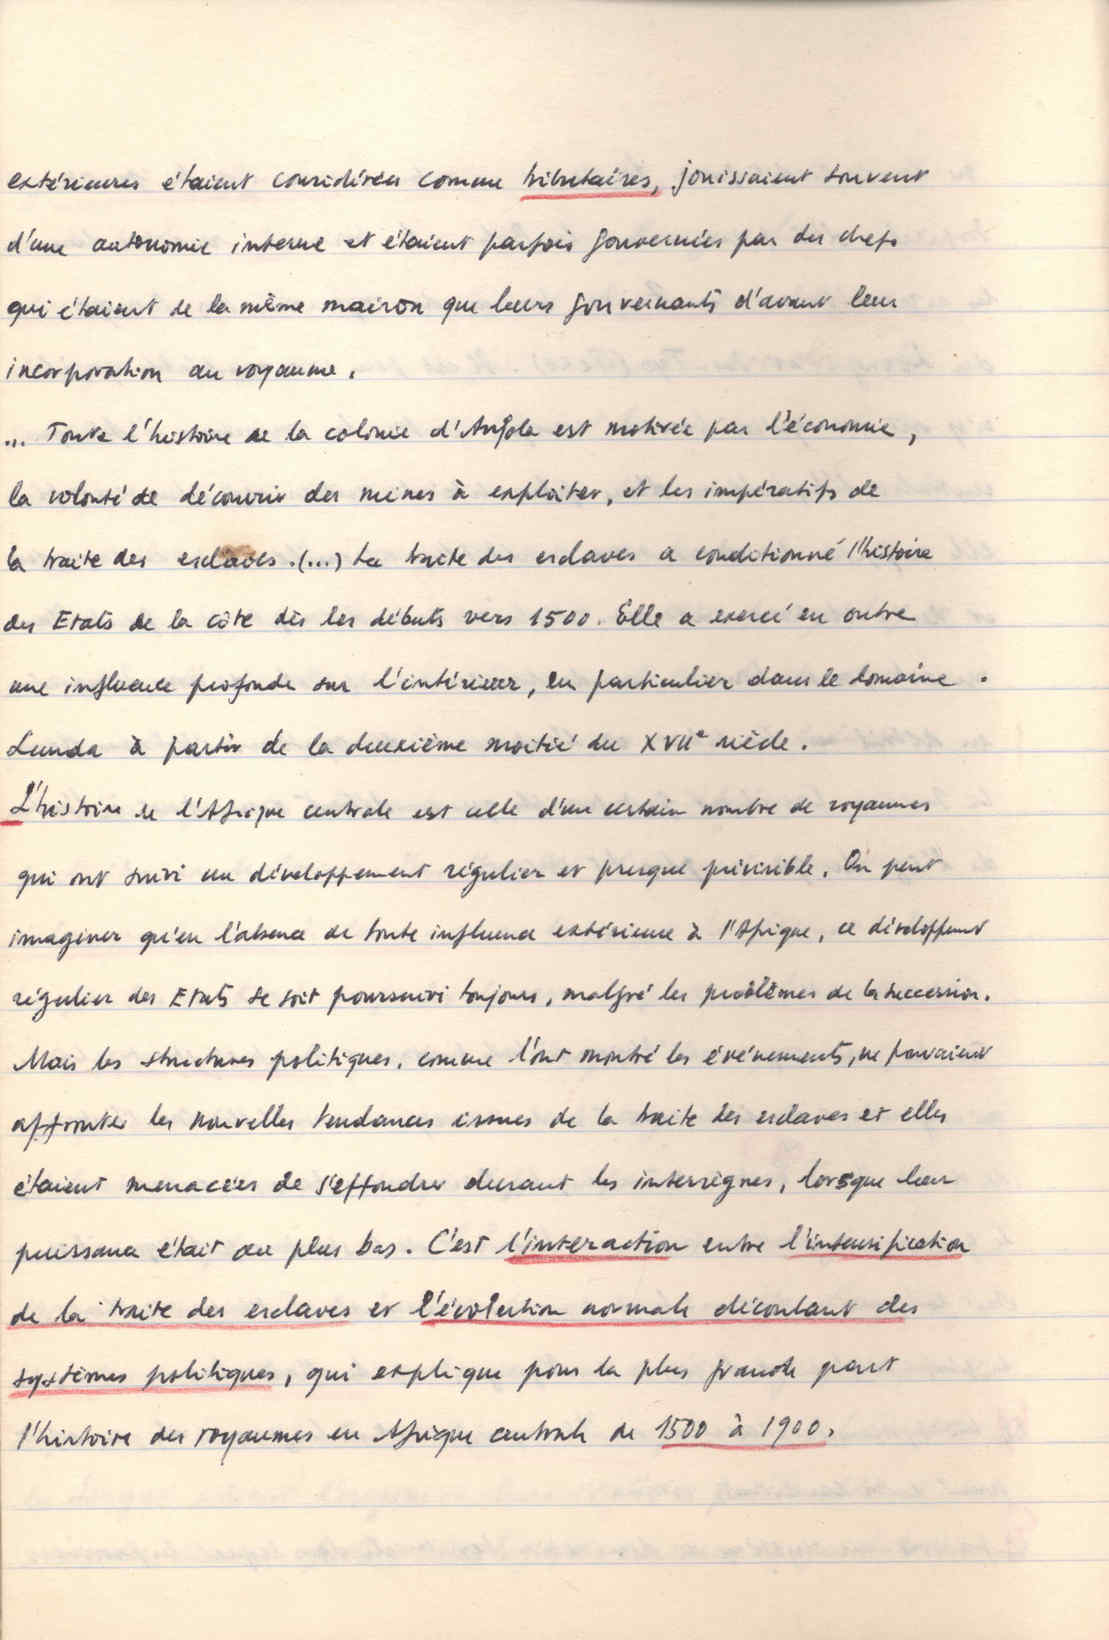 extérieures étaient considérées comme tributaires, jouissaient souvent
d'une autonomie interne et étaient parfois gouvernées par des chefs
qui étaient de la même maison que leurs gouvernants d'avant leur
incorporation au royaume.
... Toute l'histoire de la colonie d'Angola est motivée par l'économie,
la volonté de découvrir des mines à exploiter, et les impératifs de
la traite des esclaves. (...) La traite des esclaves a conditionné l'histoire
des Etats de la côte dès les débuts vers 1500. Elle a exercé en outre
une influence profonde sur l'intérieur, en particulier dans le domaine.
Lunda à partir de la deuxième moitié du XVIIe siècle.
L'histoire de l'Afrique centrale est celle d'un certain nombre de royaumes
qui ont suivi un développement régulier et presque prévisible. On peut
imaginer qu'en l'absence de toute influence extérieure à l'Afrique, ce développement
régulier des Etats se soit poursuivi toujours, malgré les problèmes de la succession.
Mais les structures politiques, comme l'ont montré les événements, ne pouvaient
affronter les nouvelles tendances issues de la traite des esclaves et elles
étaient menacées de s'effondrer durant les interrègnes, lorsque leur
puissance était au plus bas. C'est l'interaction entre l'intensification
de la traite des esclaves et l'évolution normale découlant des
systèmes politiques, qui explique pour la plus grande part
l'histoire des royaumes en Afrique centrale de 1500 à 1900.